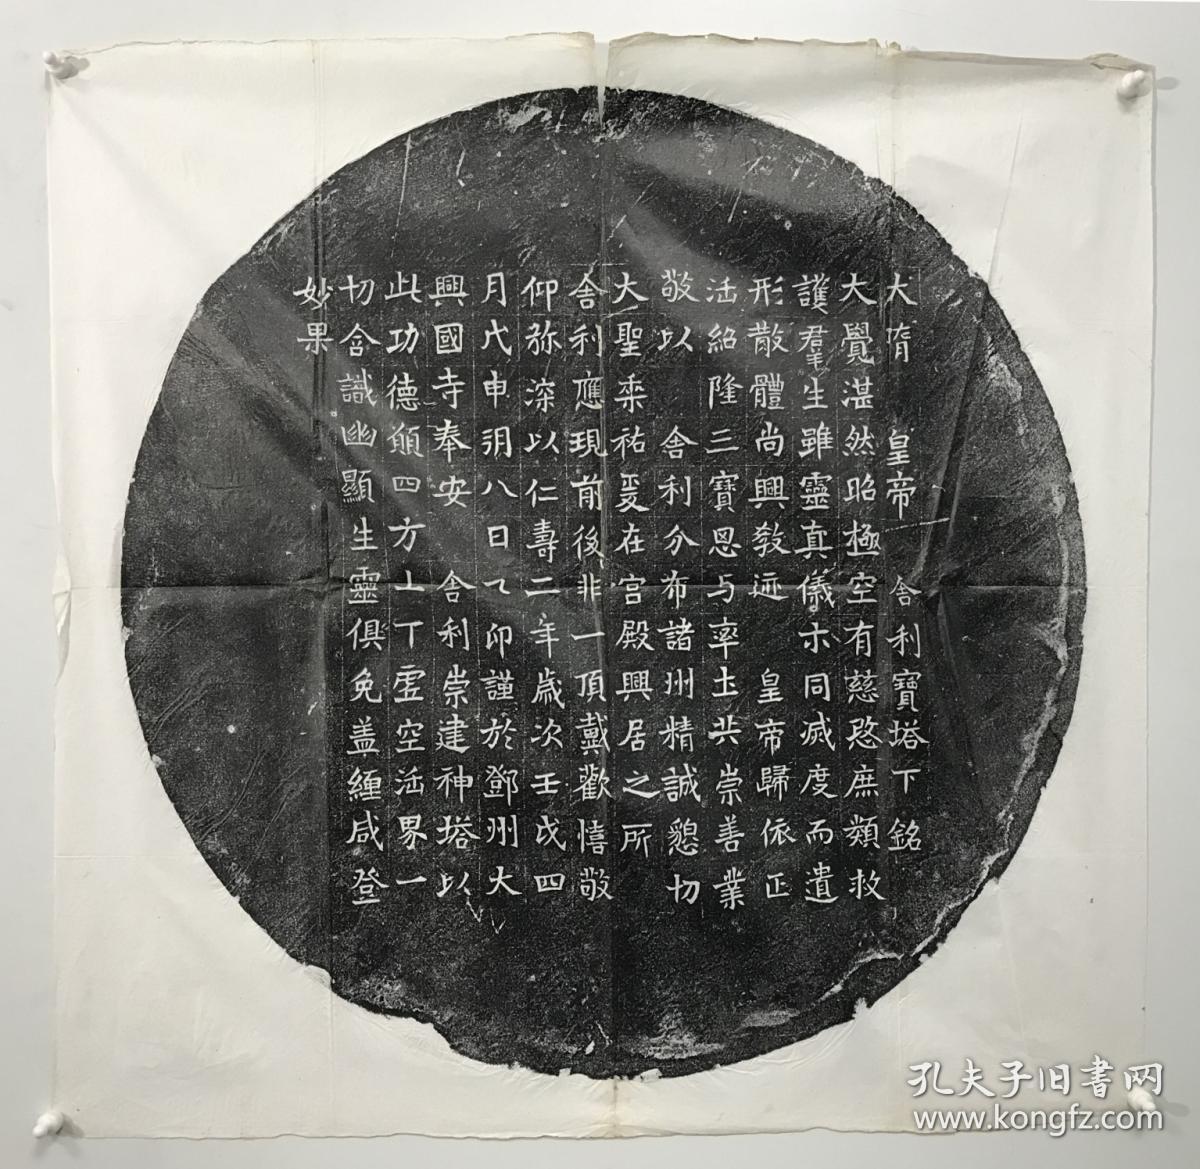 大隋 皇帝 舎利寶塔下銘
大覺湛然昭極空有慈愍庶類救
護群生雖靈真儀示同滅度而遺
形散體尚興教迹 皇帝歸依正
法紹隆三寶思与率土共崇善業
敬以 舎利分布諸州精誠懇切
大聖垂祐爰在宫殿興居之所
舎利應現前後非一頂戴歡憘敬
仰弥深以仁壽二年歲次壬戌四
月戊申朔八日乙卯謹於鄧州大
興國寺奉安 舎利崇建神塔以
此功德願四方上下虚空法界一
切含識幽顯生靈俱免盖纏咸登
妙果
孔夫子旧書网
www.kongfz.com